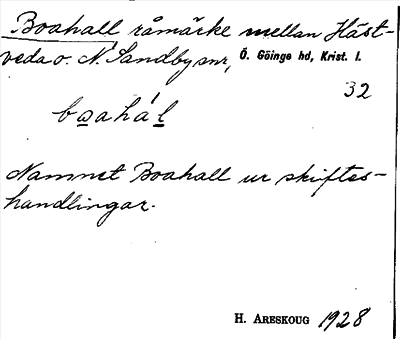 Boahall råmärke mellan Häst-
veda o. N. Sandby snr, Ö. Göinge hd, Krist. l.
32
boahá́l
Namnet Boahall ur skiftes-
handlingar.
H. ARESKOUG 1928